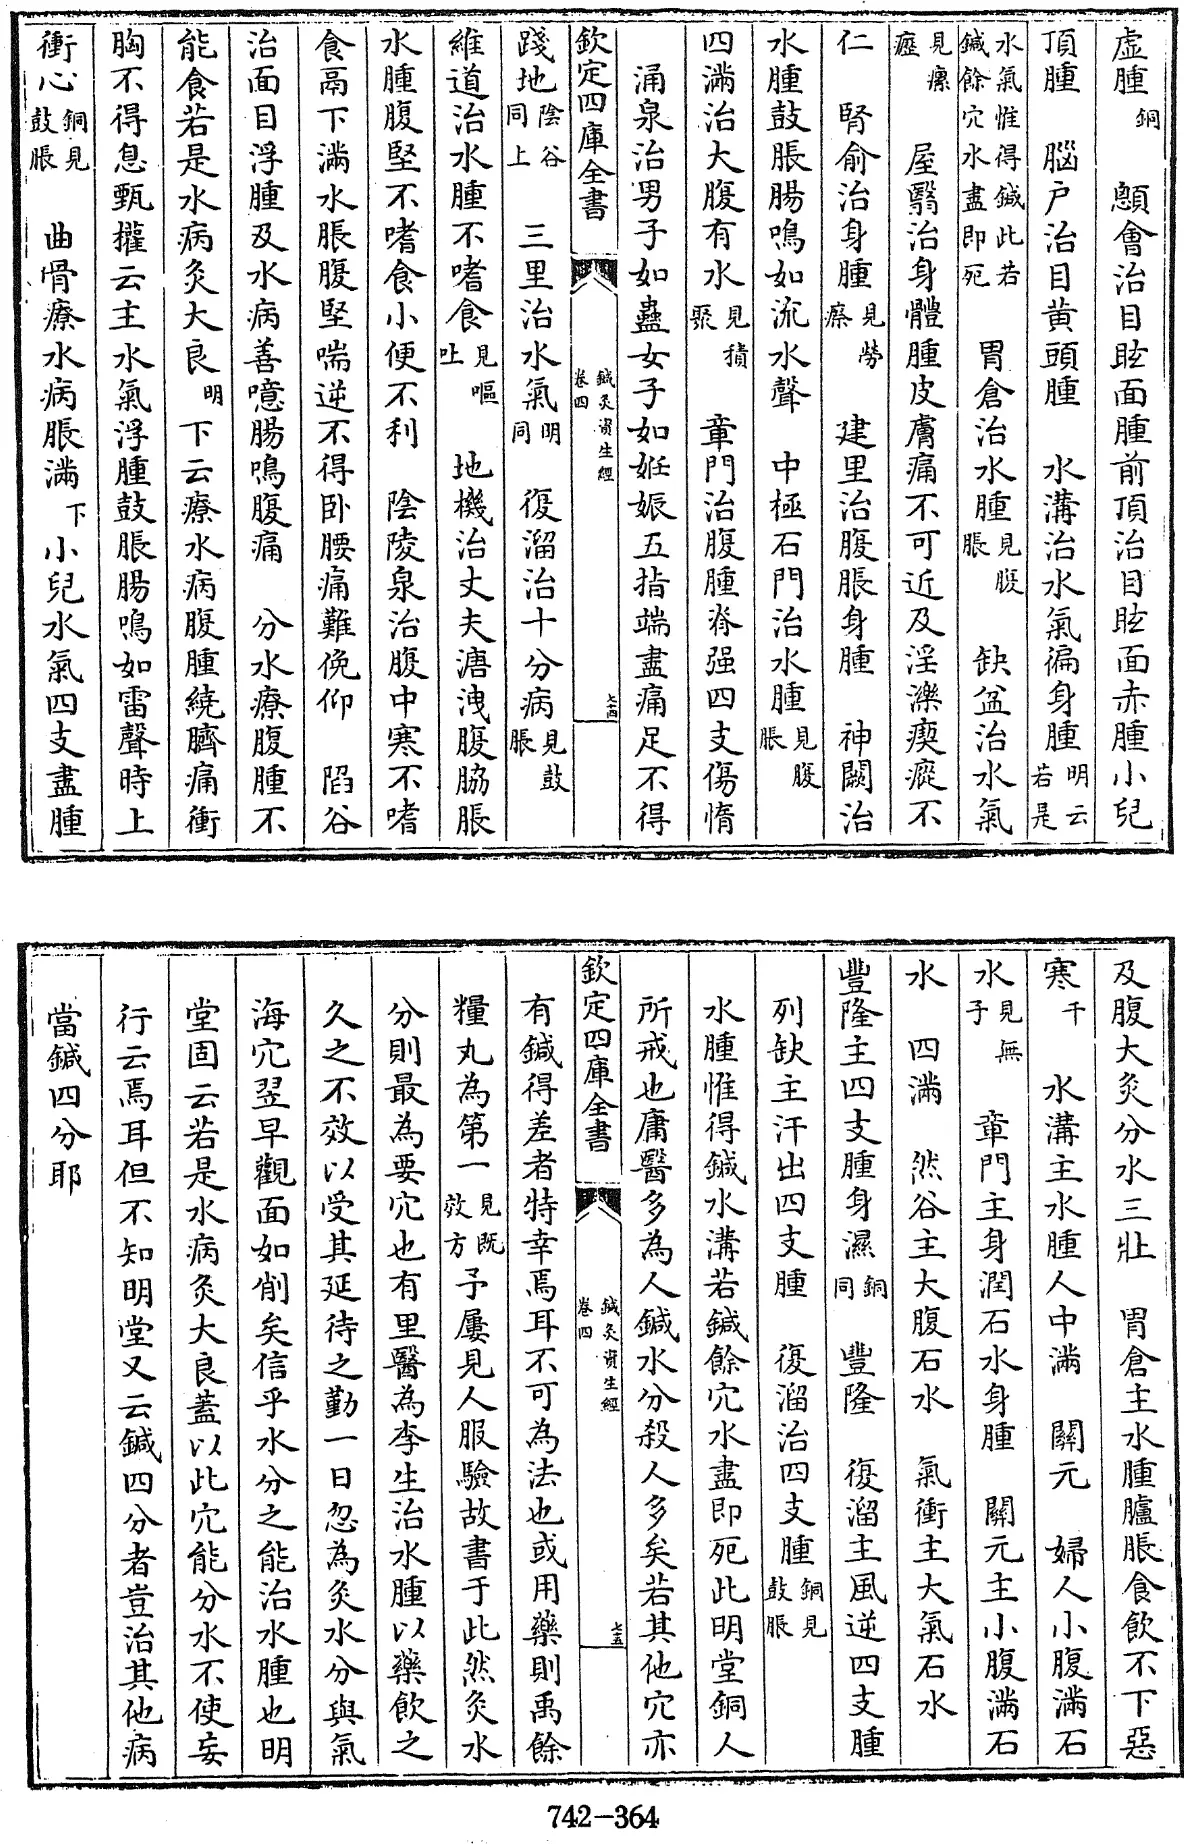 虚腫銅　顖會治目眩面腫前頂治目眩面赤腫小兒
頂腫　腦户治目黄頭腫　水溝治水氣徧身腫明云若是
水氣惟得鍼此若鍼餘穴水盡即死　胃倉治水腫見腹脹　缺盆治水氣
見瘰癧　屋翳治身體腫皮膚痛不可近及淫濼瘈瘲不
仁　腎俞治身腫見勞瘵　建里治腹脹身腫　神闕治
水腫鼓脹腸鳴如流水聲　中極石門治水腫見腹脹
四滿治大腹有水見積聚　章門治腹腫脊强四支傷惰
涌泉治男子如蠱女子如姙娠五指端盡痛足不得
欽定四庫全書　鍼灸資生經卷四　七十四
踐地陰谷同上　三里治水氣明同　復溜治十分病見鼓脹
維道治水腫不嗜食見嘔吐　地機治丈夫溏洩腹脇脹
水腫腹堅不嗜食小便不利　陰陵泉治腹中寒不嗜
食鬲下滿水脹腹堅喘逆不得卧腰痛難俛仰　陷谷
治面目浮腫及水病善噫腸鳴腹痛　分水療腹腫不
能食若是水病灸大良明下云療水病腹腫繞臍痛衝
胸不得息甄權云主水氣浮腫鼓脹腸鳴如雷聲時上
衝心銅見鼓脹　曲骨療水病脹滿下小兒水氣四支盡腫
及腹大灸分水三壯　胃倉主水腫臚脹食飲不下惡
寒千　水溝主水腫人中滿　關元　婦人小腹滿石
水見無子　章門主身潤石水身腫　關元主小腹滿石
水　四滿　然谷主大腹石水　氣衝主大氣石水
豐隆主四支腫身濕銅同　豐隆　復溜主風逆四支腫
列缺主汗出四支腫　復溜治四支腫銅見鼓脹
水腫惟得鍼水溝若鍼餘穴水盡即死此明堂銅人
所戒也庸醫多為人鍼水分殺人多矣若其他穴亦
欽定四庫全書　鍼灸資生經卷四　七十五
有鍼得差者特幸焉耳不可為法也或用藥則禹餘
糧丸為第一見既效方予屢見人服驗故書于此然灸水
分則最為要穴也有里醫為李生治水腫以藥飲之
久之不效以受其延待之勤一日忽為灸水分與氣
海穴翌早觀面如削矣信乎水分之能治水腫也明
堂固云若是水病灸大良蓋以此穴能分水不使妄
行云焉耳但不知明堂又云鍼四分者豈治其他病
當鍼四分耶
742-364